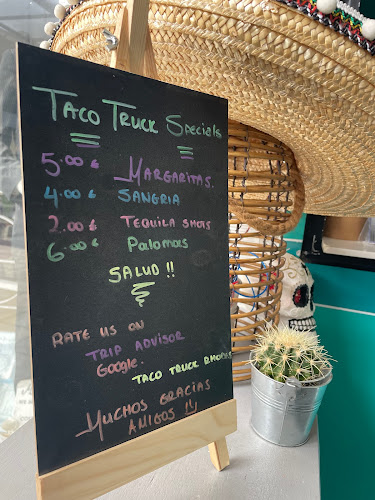 TACO TRUCK SPECIALS
5.00 € MARGARITAS.
4.00 € SANGRIA
2.00 € TEQUILA SHOTS
6.00 € Palomas
SALUD !!
RATE US ON
TRIP ADVISOR
Google.
TACO TRUCK
MUCHOS GRACIAS
AMIGOS !!